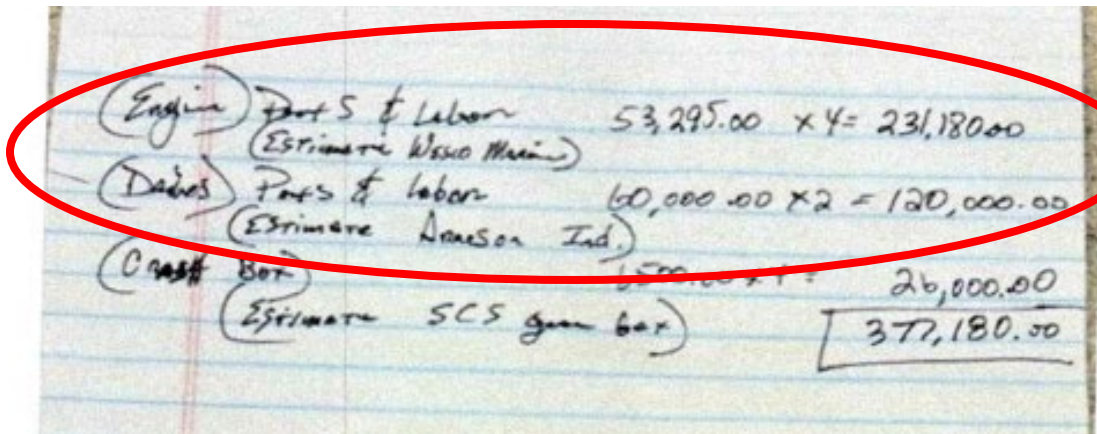 (Engine) Parts & Labor 53,295.00 x 4 = 231,180.00
(Estimate Wesco Marine)
(Drives) Parts & labor 60,000.00 x 2 = 120,000.00
(Estimate Arneson Ind.)
(Crash Box) 6500.00 x 4 = 26,000.00
(Estimate SCS gear box)
377,180.00